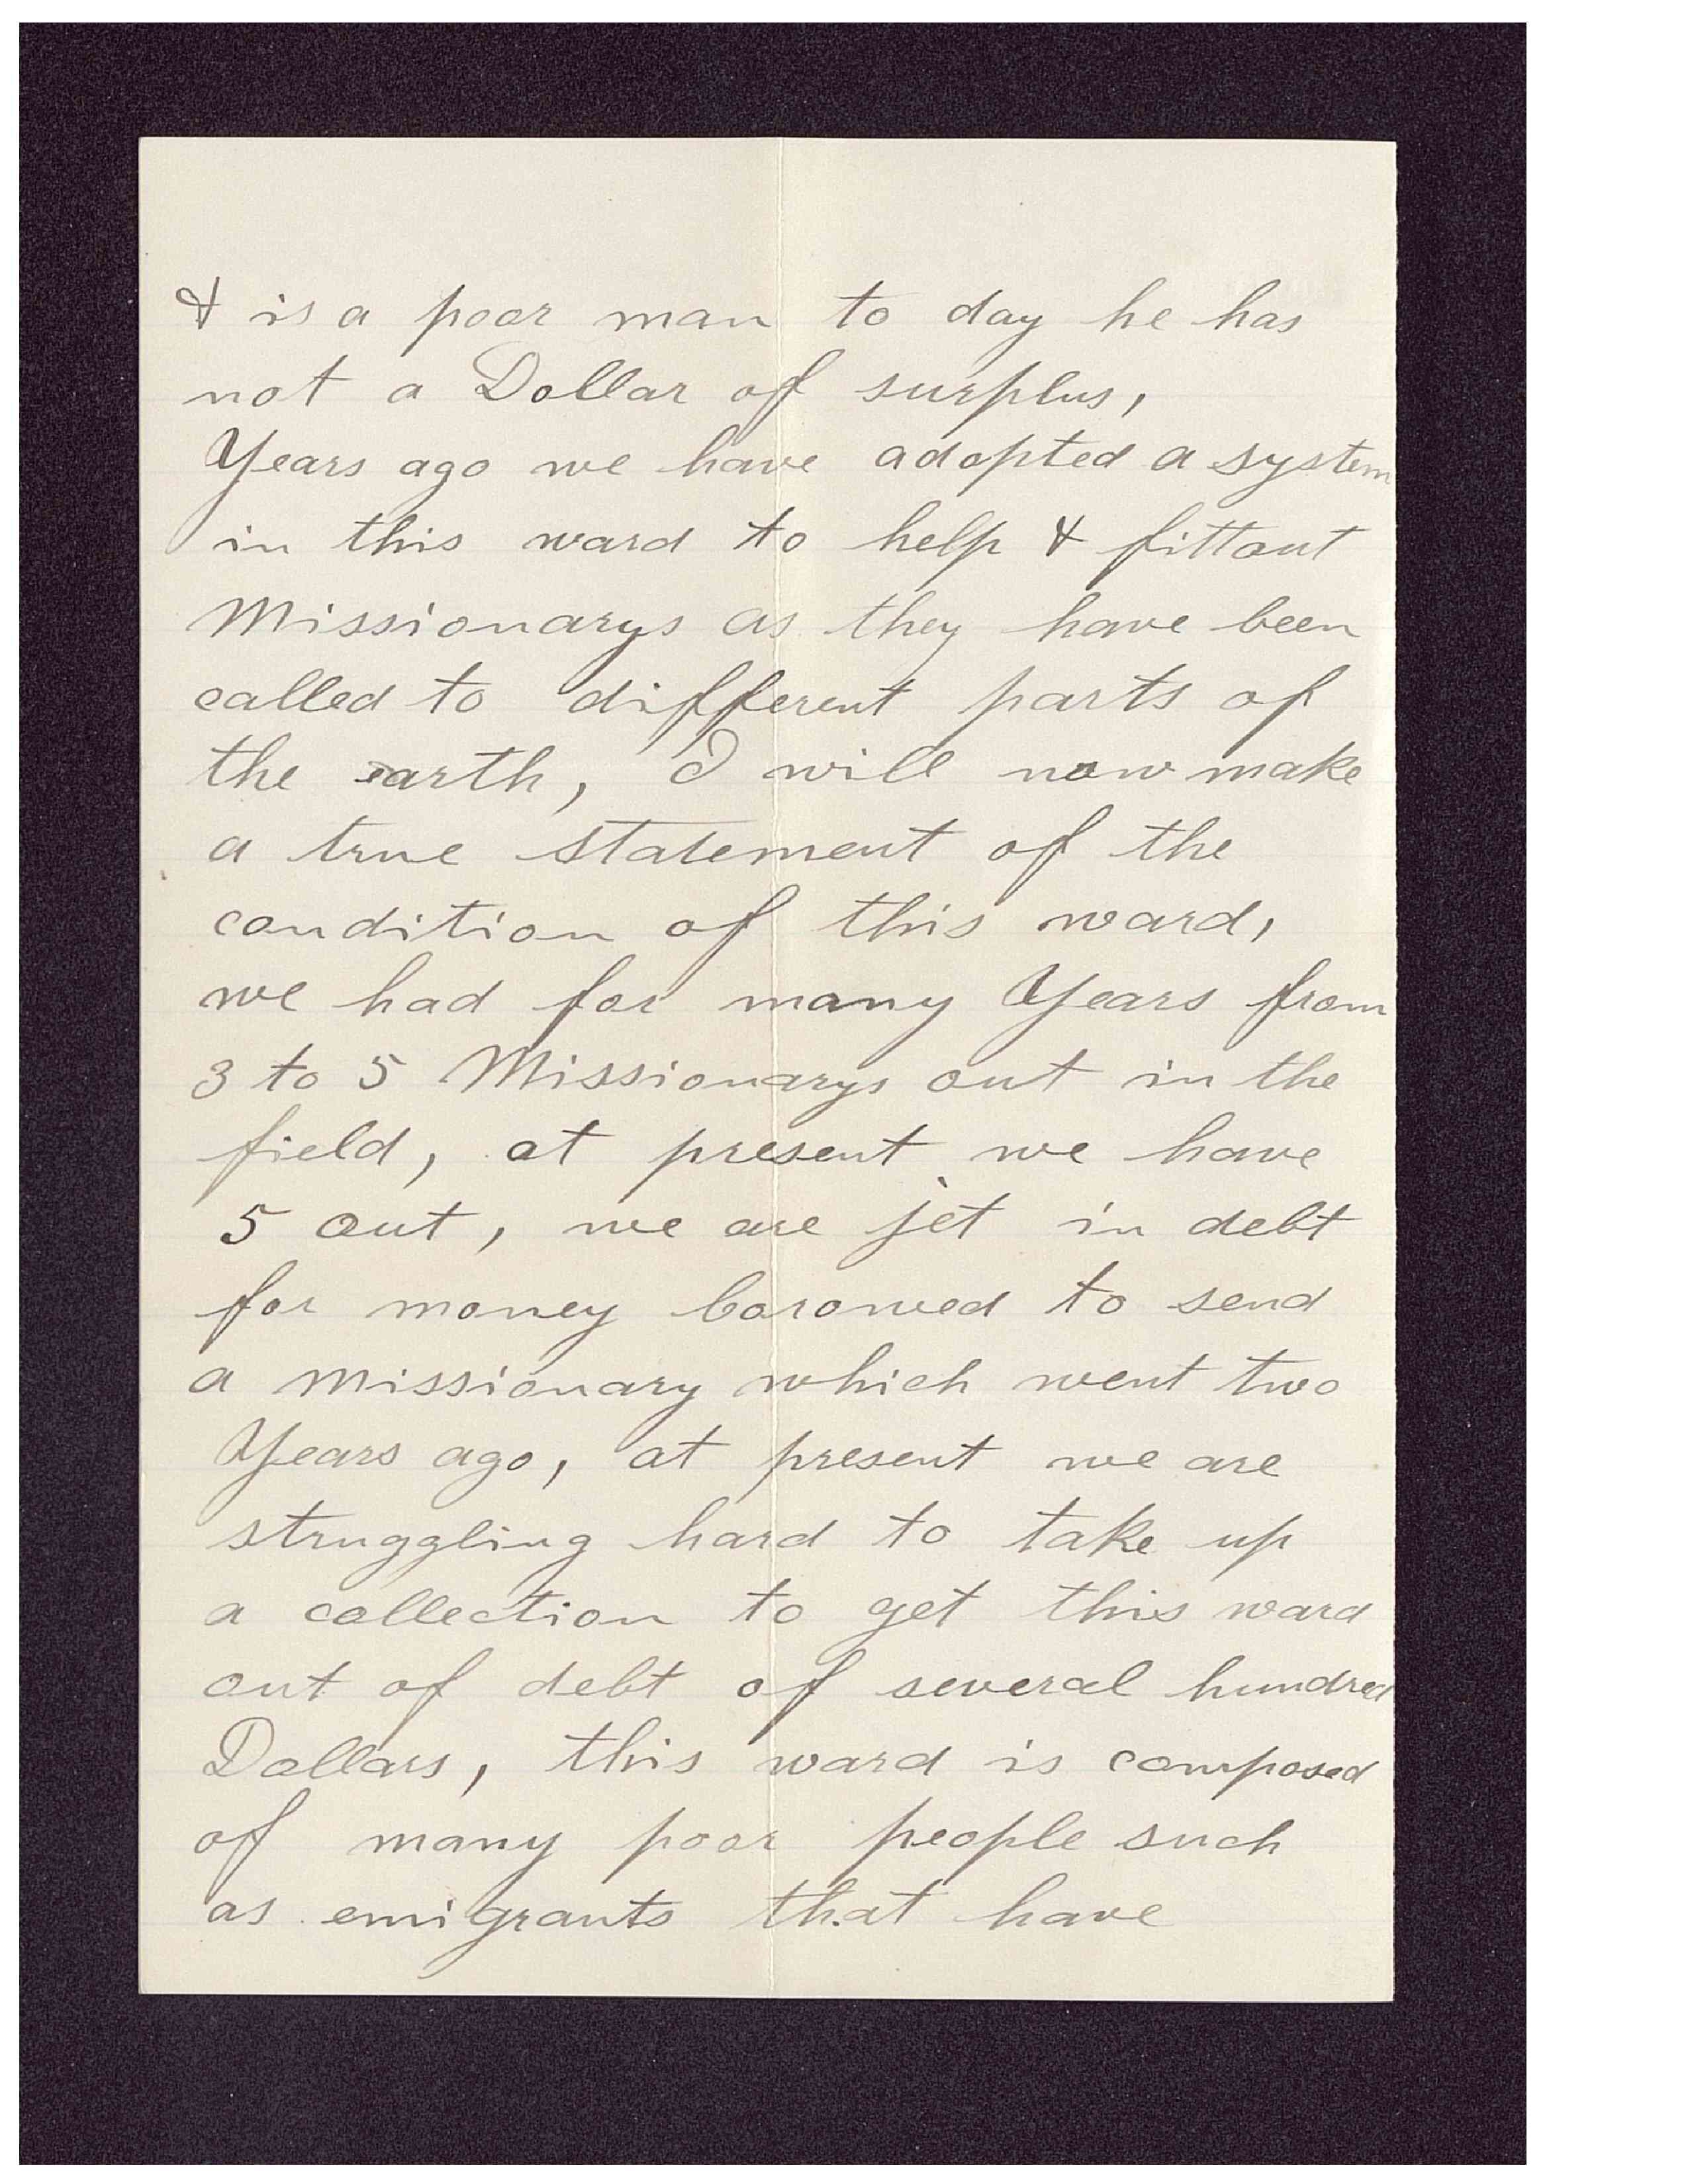 & is a poor man to day he has
not a Dollar of surplus,
Years ago we have adopted a system
in this ward to help & fittout
Missionarys as they have been
called to different parts of
the earth, I will now make
a true statement of the
condition of this ward,
we had for many Years from
3 to 5 Missionarys out in the
field, at present we have
5 out, we are jet in debt
for money borowed to send
a missionary which went two
Years ago, at present we are
struggling hard to take up
a collection to get this ward
out of debt of several hundred
Dollars, this ward is composed
of many poor people such
as emigrants that have